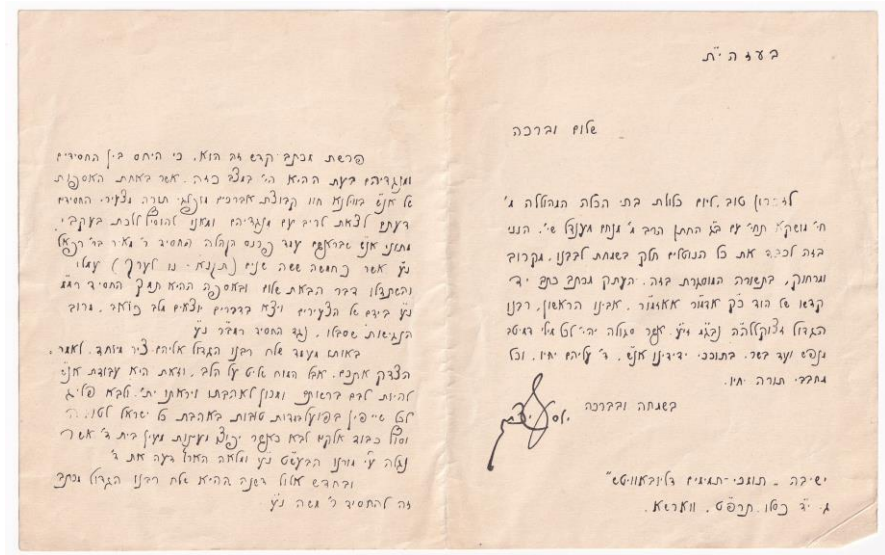 בעזהי״ת
שלום וברכה
לזכרון טוב, ליום כלולת בתי הכלה המהוללה מ'
חי' מושקא תחי' עם ב״ג החתן הרב מ' מנחם מענדל שי', הנני
בזה לכבד את כל הנוטלים חלק בשמחת לבבנו, מקרוב
ומרחוק, בתשורה המוסגרת בזה, העתק מכתב כתב ידי
קדשו של הוד כ״ק אדמו״ר אאזמו״ר, אבינו הראשון, רבנו
הגדול זצוקללה״ה נבג״מ זי״ע, אשר סגולה יהי' לכל מילי דמיטב
מנפש ועד בשר, בתוככי ידידינו אנ״ש, ד' עליהם יחיו, וכל
מחבבי תורה יחיו.
בשמחה וברכה
ישיבה „תומכי-תמימים דליובאוויטש״
ג. י״ד כסלו, תרפ״ט, ווארשא.
פרשת מכתב קדש זה הוא, כי היחס בין החסידים
ומנגדיהם בעת ההיא הי' במצב כזה, אשר באחת האספות
של אנ״ש בווילנא חוו קבוצת אברכים מופלגי תורה מצעירי החסידים
דעתם לצאת לריב עם מנגדיהם ומאנו להוסיף ללכת בעקבי
מתוני אנ״ש שבראשם עמד פרנס הקהלה החסיד ר' מאיר בר' רפאל
נ״ע אשר כחמשה ששה שנים (תקנ״א - נו לערך) עמלו
והשתדלו דבר הבאת שלום ובאספה ההיא תמך החסיד
נ״ע בידם של הצעירים ויצא בדברים יוצאים מלב כואב, מרוב
הנגישות שסבלו, נגד החסיד רמב״ר נ״ע
באותו מעמד שלח רבנו הגדול אליהם ציר מיוחד, לאמר,
הצדק אתכם, אבל המוח שליט על הלב, וזאת היא עבודת אנ״ש
להיות לבם ברשותם ומכוון לאהבתו ויראתו ית', ולבא
לכל בפועל במדות טובות באהבת כל ישראל
וסוף כבוד אלקים לבא כאשר יפוצו מעינות מעין בית ד' אשר
נגלה ע״י מורנו הבעש״ט נ״ע ומלאה הארץ דעה את ד'
ובחדש אלול דשנה ההיא שלח רבנו הגדול מכתב
זה להחסיד ר' משה נ״ע.